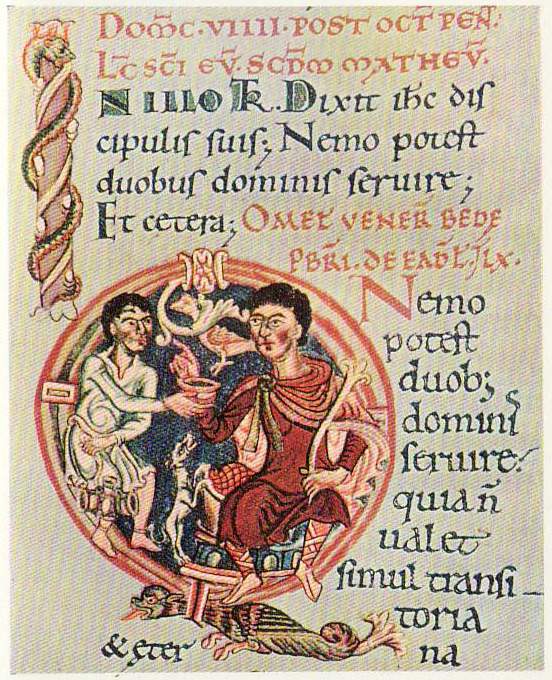 DOM̄C·VIIII·POST OCT̄ PEN̄T:
LC̄ SC̄I EV̄. SCD̄M MATHEV̄.
IN ILLO TR̄. Dixit ihc dis
cipulis suis; Nemo potest
duobus dominis seruire;
Et cetera; OMEL VENER̄ BEDE
PB̄RI. DE EAD̄ L̄.
Nemo
potest
duob;
dominis
seruire:
quia n̄
ualet
simul transi-
toria
& ęter na